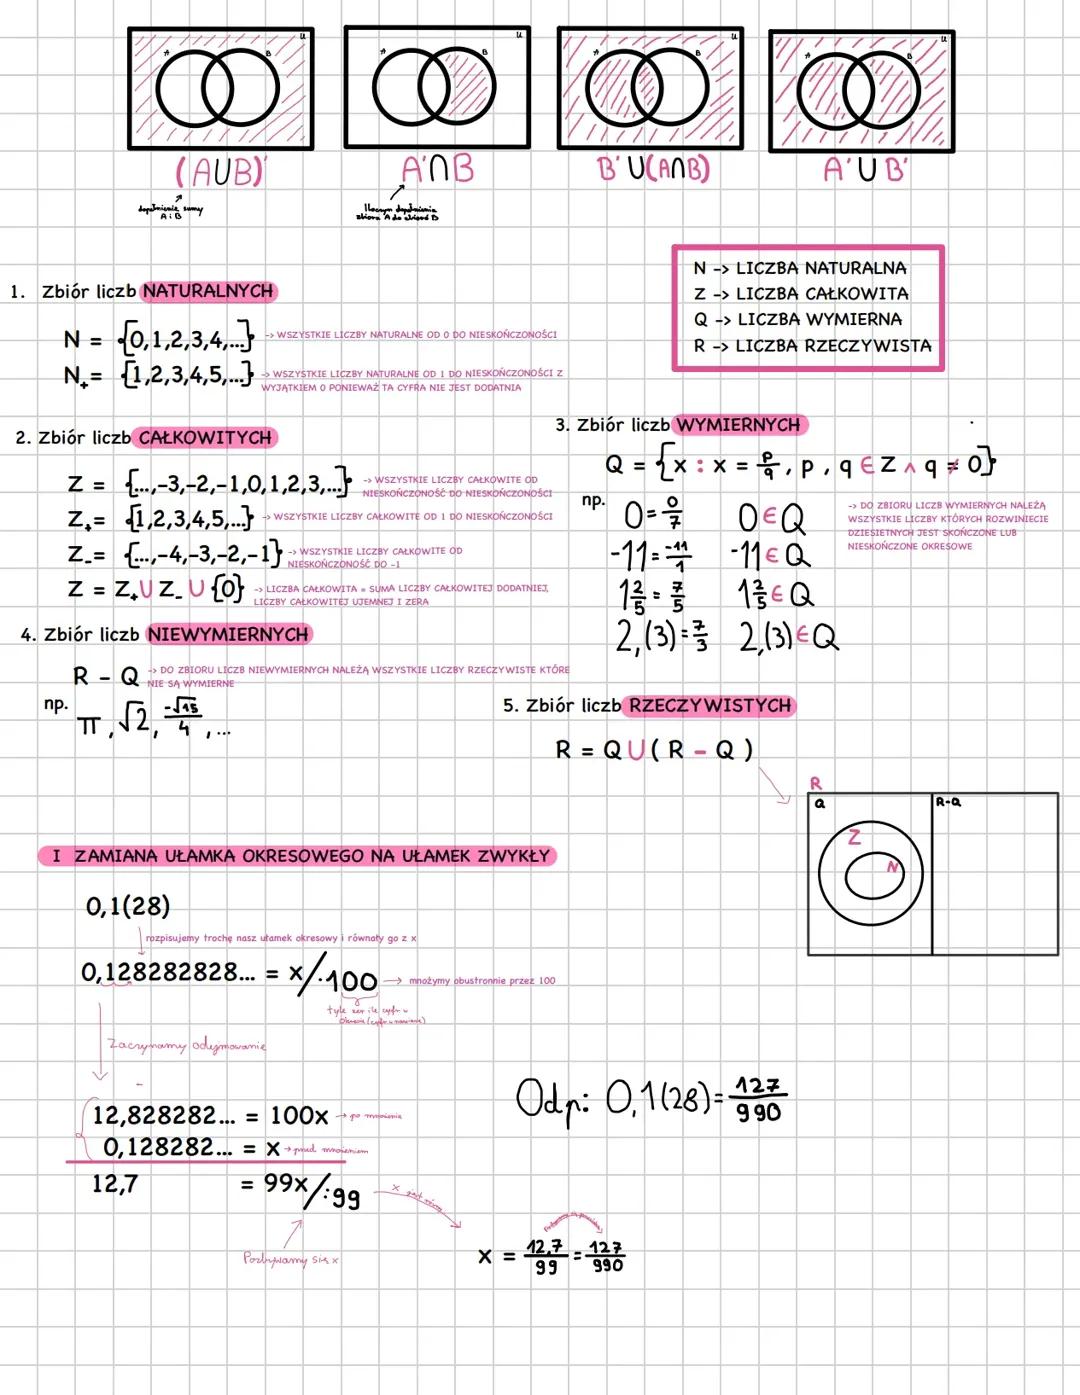 A B U
A B U
A B U
A B U
(A∪B)'
A'∩B
B'∪(A∩B)
A'∪B'
dopełnienie sumy
A i B
Iloczyn dopełnienia
zbioru A do zbioru B
N -> LICZBA NATURALNA
Z -> LICZBA CAŁKOWITA
Q -> LICZBA WYMIERNA
R -> LICZBA RZECZYWISTA
1. Zbiór liczb NATURALNYCH
N = {0,1,2,3,4,...} -> WSZYSTKIE LICZBY NATURALNE OD 0 DO NIESKOŃCZONOŚCI
N₊= {1,2,3,4,5,...} -> WSZYSTKIE LICZBY NATURALNE OD 1 DO NIESKOŃCZONOŚCI Z
WYJĄTKIEM 0 PONIEWAŻ TA CYFRA NIE JEST DODATNIA
2. Zbiór liczb CAŁKOWITYCH
Z = {...,-3,-2,-1,0,1,2,3,...} -> WSZYSTKIE LICZBY CAŁKOWITE OD
NIESKOŃCZONOŚĆ DO NIESKOŃCZONOŚCI
Z₊= {1,2,3,4,5,...} -> WSZYSTKIE LICZBY CAŁKOWITE OD 1 DO NIESKOŃCZONOŚCI
Z₋= {...,-4,-3,-2,-1} -> WSZYSTKIE LICZBY CAŁKOWITE OD
NIESKOŃCZONOŚĆ DO -1
Z = Z₊∪ Z₋ ∪ {0} -> LICZBA CAŁKOWITA = SUMA LICZBY CAŁKOWITEJ DODATNIEJ,
LICZBY CAŁKOWITEJ UJEMNEJ I ZERA
3. Zbiór liczb WYMIERNYCH
Q = {x : x = p/q , p , q ∈ Z ∧ q ≠ 0}
np. 0=0/7 0∈Q
-11=-11/1 -11∈Q
1 2/5 = 7/5 1 2/5∈Q
2,(3)=7/3 2,(3)∈Q
-> DO ZBIORU LICZB WYMIERNYCH NALEŻĄ
WSZYSTKIE LICZBY KTÓRYCH ROZWINIECIE
DZIESIETNYCH JEST SKOŃCZONE LUB
NIESKOŃCZONE OKRESOWE
4. Zbiór liczb NIEWYMIERNYCH
R - Q -> DO ZBIORU LICZB NIEWYMIERNYCH NALEŻĄ WSZYSTKIE LICZBY RZECZYWISTE KTÓRE
NIE SĄ WYMIERNE
np. π , √2, -√15/4 , ...
5. Zbiór liczb RZECZYWISTYCH
R = Q ∪ ( R - Q )
R
Q R-Q
Z
N
I ZAMIANA UŁAMKA OKRESOWEGO NA UŁAMEK ZWYKŁY
0,1(28)
rozpisujemy trochę nasz ułamek okresowy i równały go z x
0,128282828... = x/·100 → mnożymy obustronnie przez 100
tyle zer ile cyfr w
okresie (cyfr w nawiasie)
Zaczynamy odejmowanie
-
12,828282... = 100x → po mnożeniu
0,128282... = x → przed mnożeniem
12,7 = 99x/:99
x jest równy
Pozbywamy się x
x = 12,7/99 = 127/990
Odp: 0,1(28)=127/990